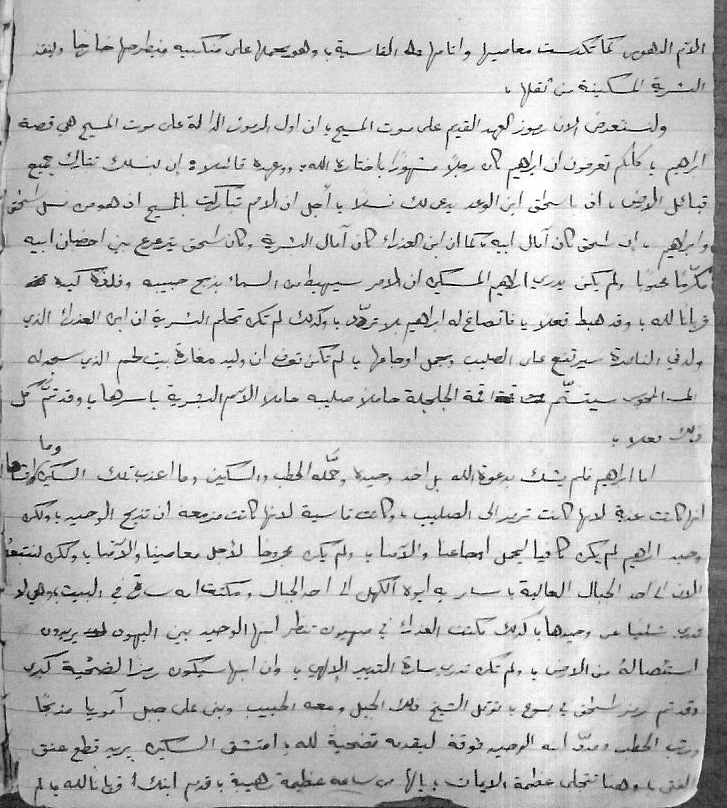 الاثم الدهور كما تكدست معاصيها وآثامها القاسية، وهو يحملها على منكبيه فيطرحها خارجا وينقذ
البشرية المسكينة من ثقلها،
ولنستعرض الان رموز العهد القديم على موت المسيح، ان اول الرموز الدالة على موت المسيح هي قصة
ابراهيم، كلكم تعرفون ان ابراهيم كان رجلاً مشهوراً باختاره الله، ووعده قائلاً: إن بنسلك تتبارك جميع
قبائل الارض، ان باسحق ابن الوعد يدعى لك نسلاً، أجل ان الامم تباركت بالمسيح اذ هو من نسل اسحق
وابراهيم، إن اسحق كان آمال ابيه، كما ان ابن العذراء كان آمال البشرية، وكان اسحق يترعرع بين احضان ابيه
مكرّماً محبوباً، ولم يكن يدري ابراهيم المسكين ان الامر سيهبط من السماء بذبح حبيبه وفلذة كبده
قرباناً لله، وقد هبط فعلا، فانصاع له ابراهيم بلا تردّد، وكذلك لم تكن تحلم البشرية ان ابن العذراء الذي
ولد في الناصرة سيرتفع على الصليب ويحمل اوجاعها، لم تكن تعرف ان وليد مغارة بيت لحم الذي سجد له
المجوس سيتسنّم قمة الجلجلة حاملا صليبه حاملا الاسم البشرية باسرها، وقد تمّ كل
ذلك فعلا،
اما ابراهيم فلم يشك بدعوة الله بل اخذ وحيده وحمّله الحطب والسكين وما اعذب تلك السكين وما
انها كانت عذبة لانها كانت ترمز الى الصليب، وكانت قاسية لانها كانت مزمعة ان تذبح الوحيد، ولكن
وحيد ابراهيم لم يكن كافيا ليحمل اوجاعنا وآلامنا، ولم يكن مجروحا لأجل معاصينا وآثامنا، ولكن لنتبعه
الان الى احد الجبال العالية، سار به أبوه الكهل الى احد الجبال ومكثت امه سارة في البيت، وهي لا
تدري شيئا عن وحيدها، كذلك مكثت العذراء في صهيون تنظر ابنها الوحيد بين اليهود يريدون
استئصاله من الارض، ولم تكن تدري سارة التدبير الإلهي، وان ابنها سيكون رمزاً لضحية كبرى
وقد تم رمز اسحق في يسوع، توغل الشيخ ذلك الجبل ومعه الحبيب وبنى على جبل آموريا مذبحاً
ورتب الحطب ومدّد ابنه الوحيد فوقه ليقدمه تضحية لله، امتشق السكين يريد قطع عنق
الفتى، وهنا تتجلى عظمة الايمان، يالها من ساعة عظيمة رهيبة، قدم ابنك قربانا لله، لم